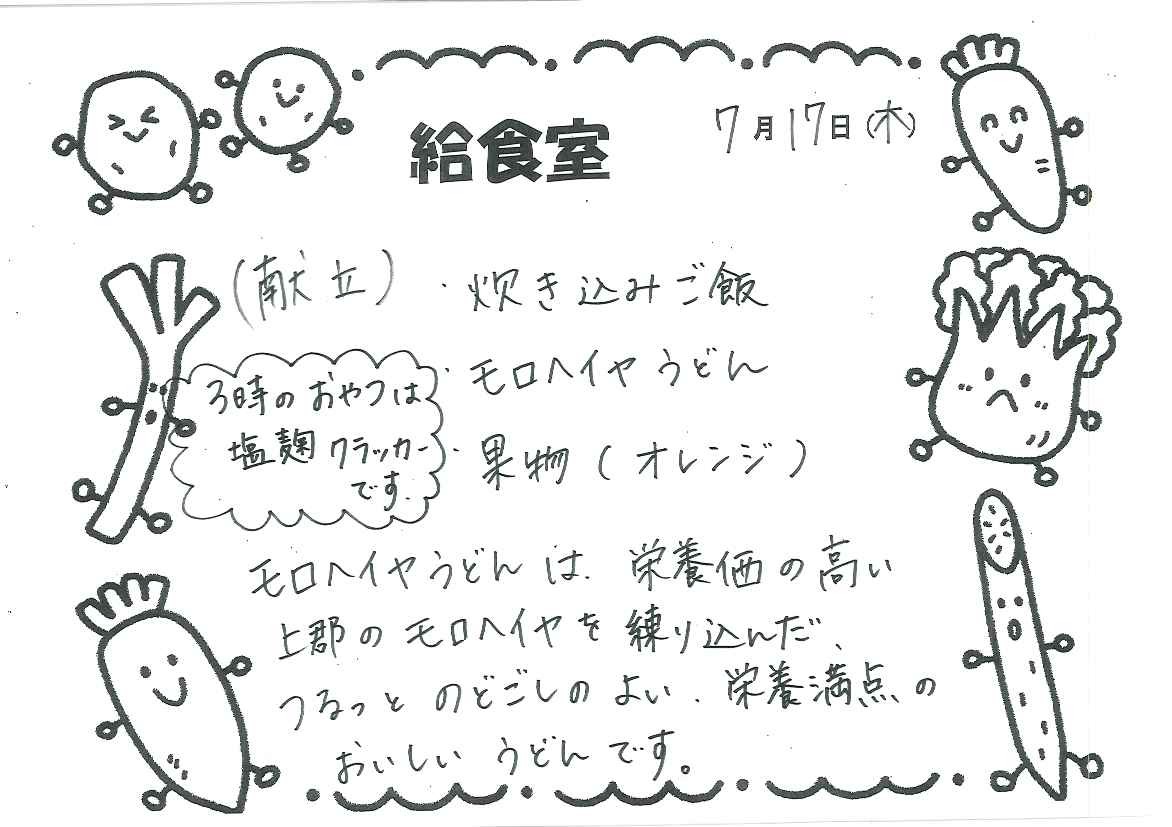 給食室
7月17日(木)
(献立)・炊き込みご飯
・モロヘイヤうどん
・果物(オレンジ)
3時のおやつは
塩麹クラッカー
です.
モロヘイヤうどんは、栄養価の高い
上郡のモロヘイヤを練り込んだ、
つるっとのどごしのよい、栄養満点の
おいしいうどんです。